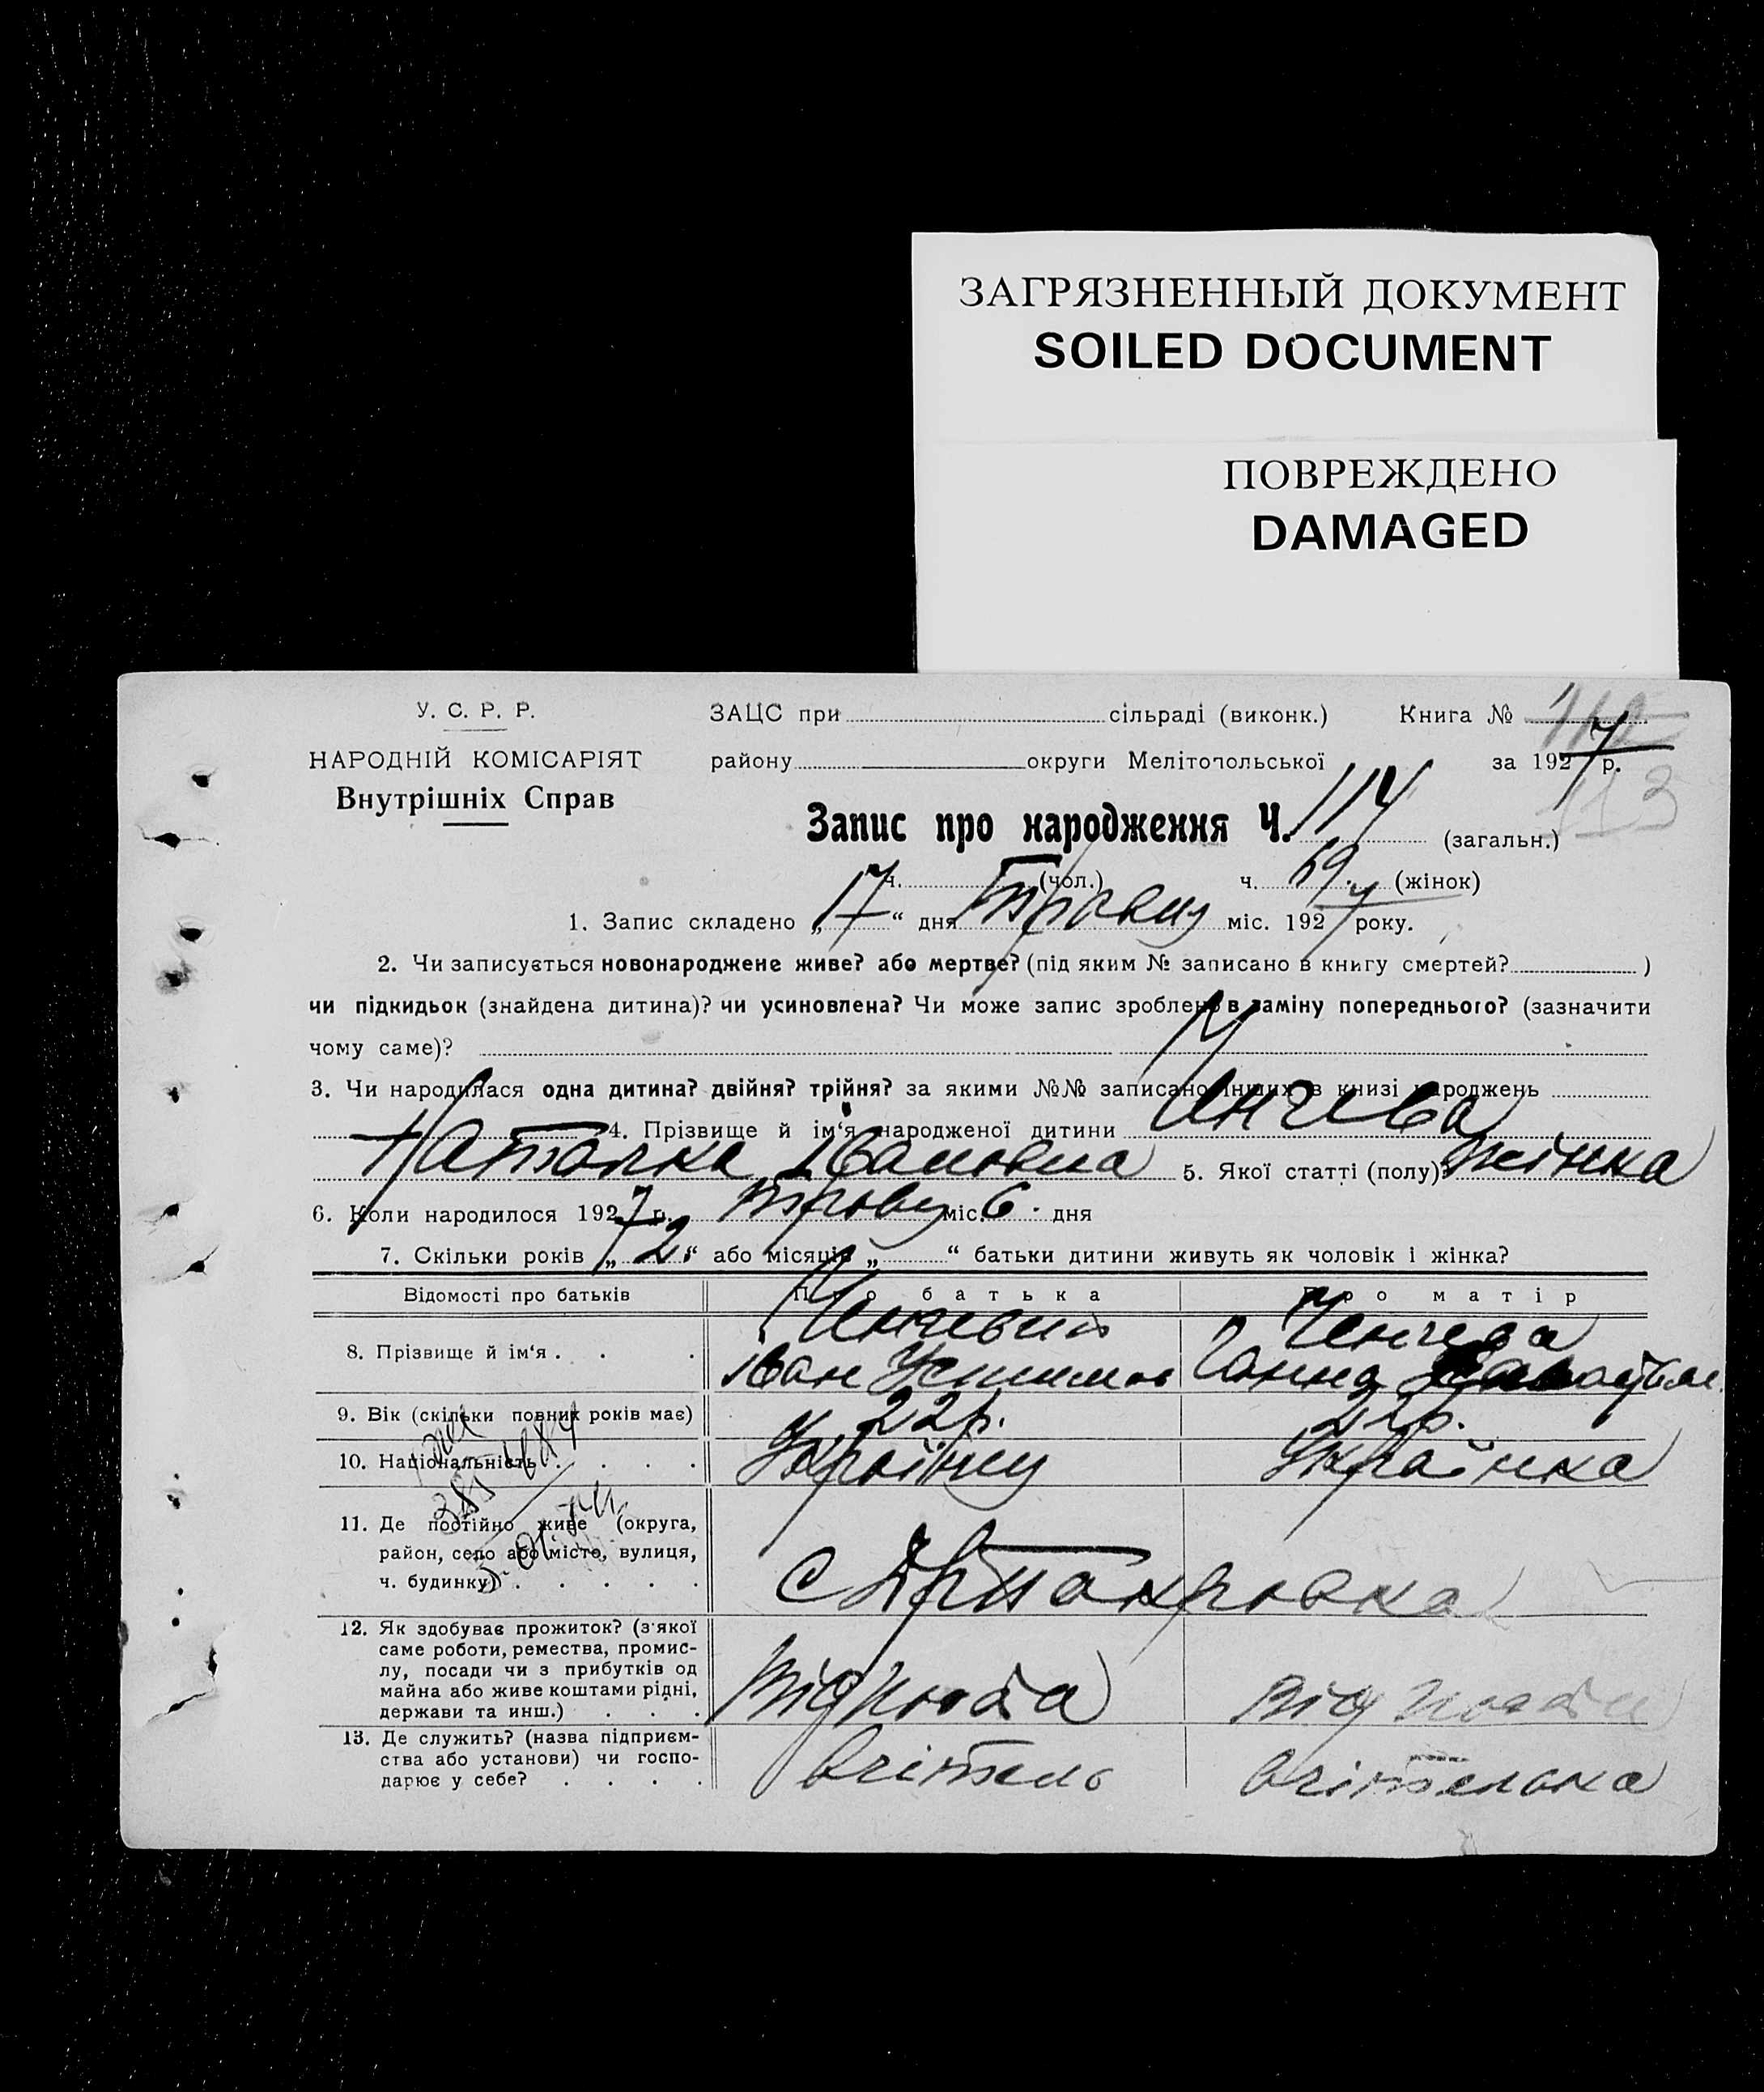 ЗАГРЯЗНЕННЫЙ ДОКУМЕНТ
SOILED DOCUMENT
ПОВРЕЖДЕНО
DAMAGED
У. С. Р. Р.
НАРОДНІЙ КОМІСАРІЯТ
Внутрішніх Справ
ЗАЦС при сільраді (виконк.) Книга №
району округи Мелітопольської за 1927 р.
113
Запис про народження Ч. 114 (загальн.)
ч. (чол.) ч. 69 (жінок)
1. Запис складено „17“ дня Травня міс. 1927 року.
2. Чи записується новонароджене живе? або мертве? (під яким № записано в книгу смертей? )
чи підкидьок (знайдена дитина)? чи усиновлена? Чи може запис зроблено в заміну попереднього? (зазначити
чому саме)?
3. Чи народилася одна дитина? двійня? трійня? за якими №№ записано інших в книзі народжень
4. Прізвище й ім‘я народженої дитини
Наталка Івановна 5. Якої статті (полу)? жінка
6. Коли народилося 1927 р. міс. 6 дня
7. Скільки років „2“ або місяців „ “ батьки дитини живуть як чоловік і жінка?
Відомості про батьків Про батька Про матір
8. Прізвище й ім‘я . . .
Іван Ганна
9. Вік (скільки повних років має) 22р.
10. Національність . . . . Українец Українка
11. Де постійно живе (округа,
район, село або місто, вулиця,
ч. будинку) . . . . .
с
12. Як здобуває прожиток? (з'якої
саме роботи, ремества, промис-
лу, посади чи з прибутків од
майна або живе коштами рідні,
держави та инш.) . . .
Від Від
13. Де служить? (назва підприєм-
ства або установи) чи госпо-
дарює у себе? . . . .
Вчітель Вчітелька